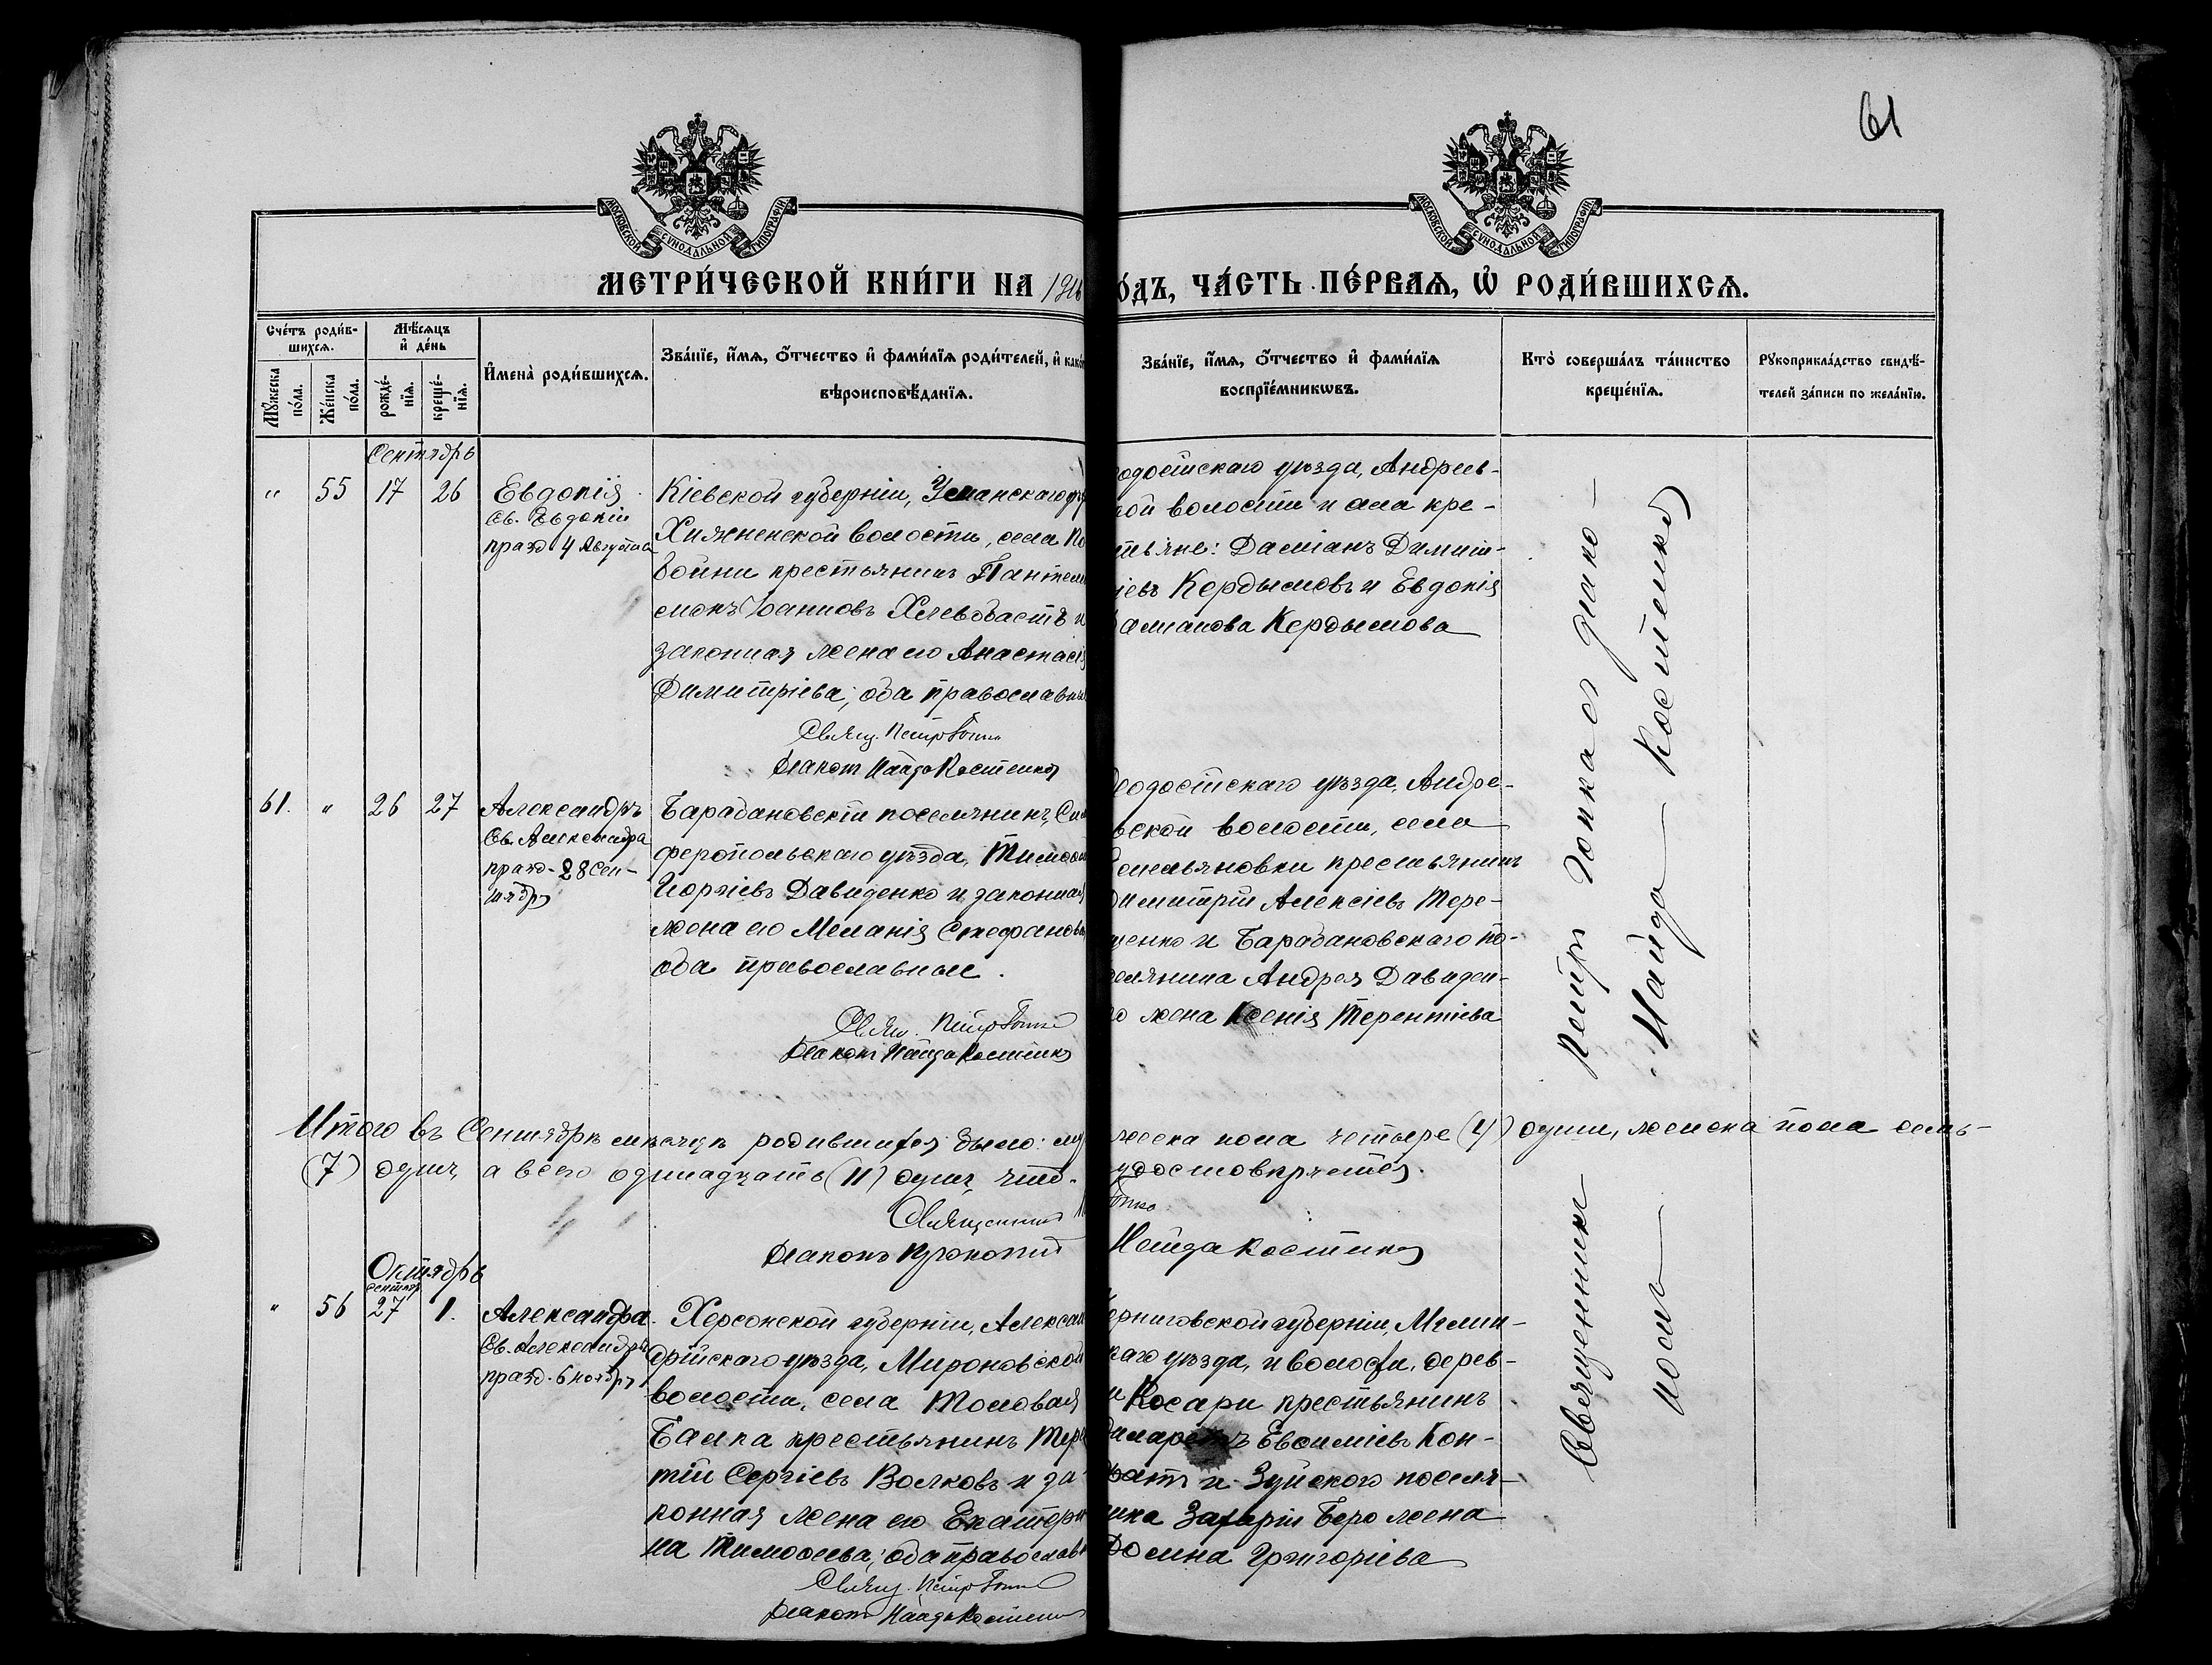 61
МОСКОВСКОЙ СѴНОДАЛЬНОЙ ТИПОГРАФІИ
МОСКОВСКОЙ СѴНОДАЛЬНОЙ ТИПОГРАФІИ
МЕТРИ́ЧЕСКОЙ КНИ́ГИ НА 1916
О́ДЪ, ЧА́СТЬ ПЕ́РВАѦ, Ѡ҆ РОДИ́ВШИХСѦ.
Сче́тъ роди́в-
шихсѧ.
Мѣ́сѧцъ
и҆ де́нь
Мꙋ́жеска
по́ла.
Же́нска
по́ла.
рожде́-
нїѧ.
креще́-
нїѧ.
И҆мена̀ роди́вшихсѧ.
Зва́нїе, и҆́мѧ, ѻ҆́тчество и҆ фами́лїѧ роди́телей, и҆ како́
вѣроисповѣ́данїѧ.
Зва́нїе, и҆́мѧ, ѻ҆́тчество и҆ фами́лїѧ
воспрїе́мникѡвъ.
Кто̀ соверша́лъ та́инство
креще́нїѧ.
Рꙋкоприкла́дство свидѣ́-
телей за́писи по жела́нїю.
Сентябрь
" 55 17 26
Евдокія
Св. Евдокіи
празд. 4 Августа
Кіевской губерніи, Уманскаго уѣ
Хижненской волости, села По
войни крестьянинъ Пантеле
имонъ Іоанновъ Хлевобастъ и
законная жена его Анастасія
Димитріева; оба православны
Свящ. Петръ Гопка
Діаконъ Найда Костенко
одосійскаго уѣзда, Андреев-
кой волости и села кре-
тьяне: Даміанъ Димит-
ріевъ Кердымовъ и Евдокія
Даміанова Кердымова
61. " 26 27
Александръ
Св. Александра
празд. 28 Сен-
тября
Барабановскій поселянинъ, Сим
феропольскаго уѣзда, Тимоѳей
Георгіевъ Давиденко и законная
жена его Меланія Стефанова
оба православные.
Свящ. Петръ Гопка
Діаконъ Найда Костенко
Ѳеодосійскаго уѣзда, Андре-
евской волости, села
Емельяновки крестьянинъ
Димитрій Алексіевъ Тере-
щенко и Барабановскаго по-
селянина Андрея Давиден-
ко жена Ксенія Терентіева
Священникъ Петръ Гопка съ діако-
номъ Найда-Костенко
Итого въ Сентябрѣ мѣсяцѣ родившихся было: му
жеска пола четыре (4) души, женска пола семь-
(7) душъ, а всего одинадцать (11) душъ, что
удостовѣряется.
Священникъ
Гопка
Діаконъ Прокопій
Найда Костенко
Октябрь
сентяб.
" 56 27 1.
Александра
Св. Александры
празд. 6 ноября
Херсонской губерніи, Алексан
дрійскаго уѣзда, Мироновской
волости, села Толовая
Балка крестьянинъ Тере
тій Сергіевъ Волковъ и за-
конная жена его Екатери
на Тимоѳеева; оба православн
Свящ. Петръ Гопка
Діаконъ Найда Костенко
ерниговской губерніи, Мглин-
скаго уѣзда, и волости, дерев-
ни Косари крестьянинъ
Евѳиміевъ Кон-
ратъ и Зуйскаго поселя-
нина Захарія Беро жена
Домна Григоріева